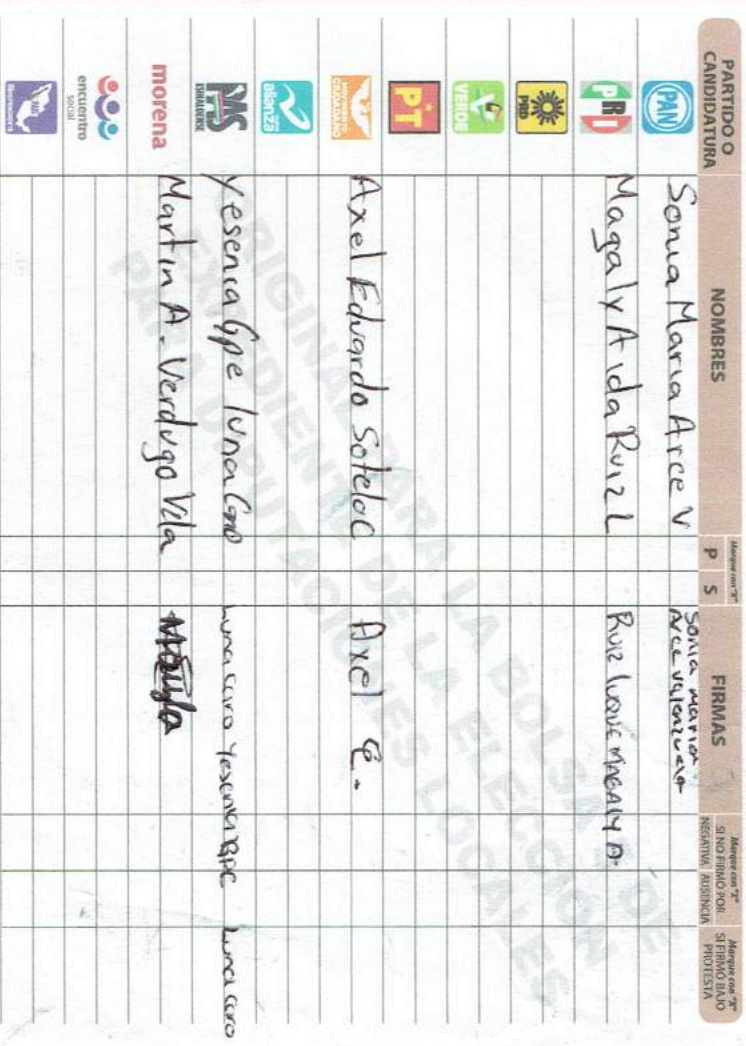 PARTIDO O CANDIDATURA NOMBRES Marque con "X" P S FIRMAS Marque con "X" SI NO FIRMÓ POR NEGATIVA AUSENCIA Marque con "X" SI FIRMÓ BAJO PROTESTA
PAN Sonia Maria Arce V Sonia Maria Arce Valenzuela
PRI Magaly Aida Ruiz L Ruiz Luque MAGALY A.
PRD
VERDE
PT
MOVIMIENTO CIUDADANO Axel Eduardo Sotelo C Axel E.
alianza
PAS SINALOENSE Yesenia Gpe Luna Caro Luna Caro Yesenia Gpe Luna Caro
morena Martin A. Verdugo Vila
encuentro social
ORIGINAL PARA LA BOLSA DE
EXPEDIENTE DE LA ELECCIÓN
PARA DIPUTACIONES LOCALES